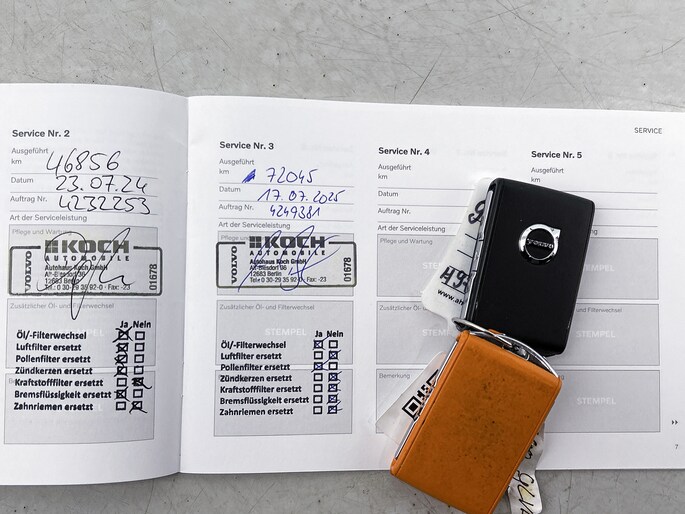 SERVICE
Service Nr. 2
Ausgeführt
km 46856
Datum 23.07.24
Auftrag Nr. 4232253
Art der Serviceleistung
Pflege und Wartung
VOLVO
KOCH
AUTOMOBILE
Autohaus Koch GmbH
12683 Berlin
Tel.: 0 30-29 35 92-0 · Fax: -23
01678
Zusätzlicher Öl- und Filterwechsel
Ja Nein
Öl-/Filterwechsel
Luftfilter ersetzt
Pollenfilter ersetzt
Zündkerzen ersetzt
Kraftstofffilter ersetzt
Bremsflüssigkeit ersetzt
Zahnriemen ersetzt
Service Nr. 3
Ausgeführt
km 72045
Datum 17.07.2025
Auftrag Nr. 4249381
Art der Serviceleistung
Pflege und Wartung
VOLVO
KOCH
AUTOMOBILE
Autohaus Koch GmbH
12683 Berlin
Tel.: 0 30-29 35 92-0 · Fax: -23
01678
Zusätzlicher Öl- und Filterwechsel
STEMPEL
Ja Nein
Öl-/Filterwechsel
Luftfilter ersetzt
Pollenfilter ersetzt
Zündkerzen ersetzt
Kraftstofffilter ersetzt
Bremsflüssigkeit ersetzt
Zahnriemen ersetzt
Service Nr. 4
Ausgeführt
km
Datum
Auftrag Nr.
Art der Serviceleistung
Pflege und Wartung
Zusätzlicher Öl- und
Bemerkung
Service Nr. 5
Ausgeführt
km
STEMPEL
STEMPEL
STEMPEL
VOLVO
7